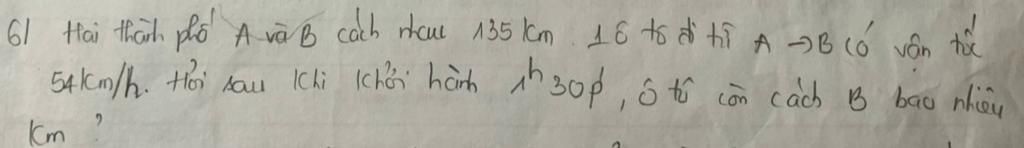 6/ Hai thành phố A và B cách nhau 135 km. 1 ô tô đi từ A → B có vận tốc
54 km/h. Hỏi sau khi khởi hành 1h30p, ô tô còn cách B bao nhiêu
km ?